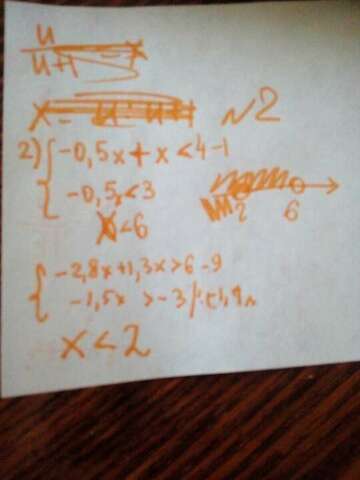 и
и+1
№2
2) -0,5x + x < 4-1
-0,5x < 3
X < 6
2 6
-2,8x+1,3x > 6-9
-1,5x > -3
x < 2